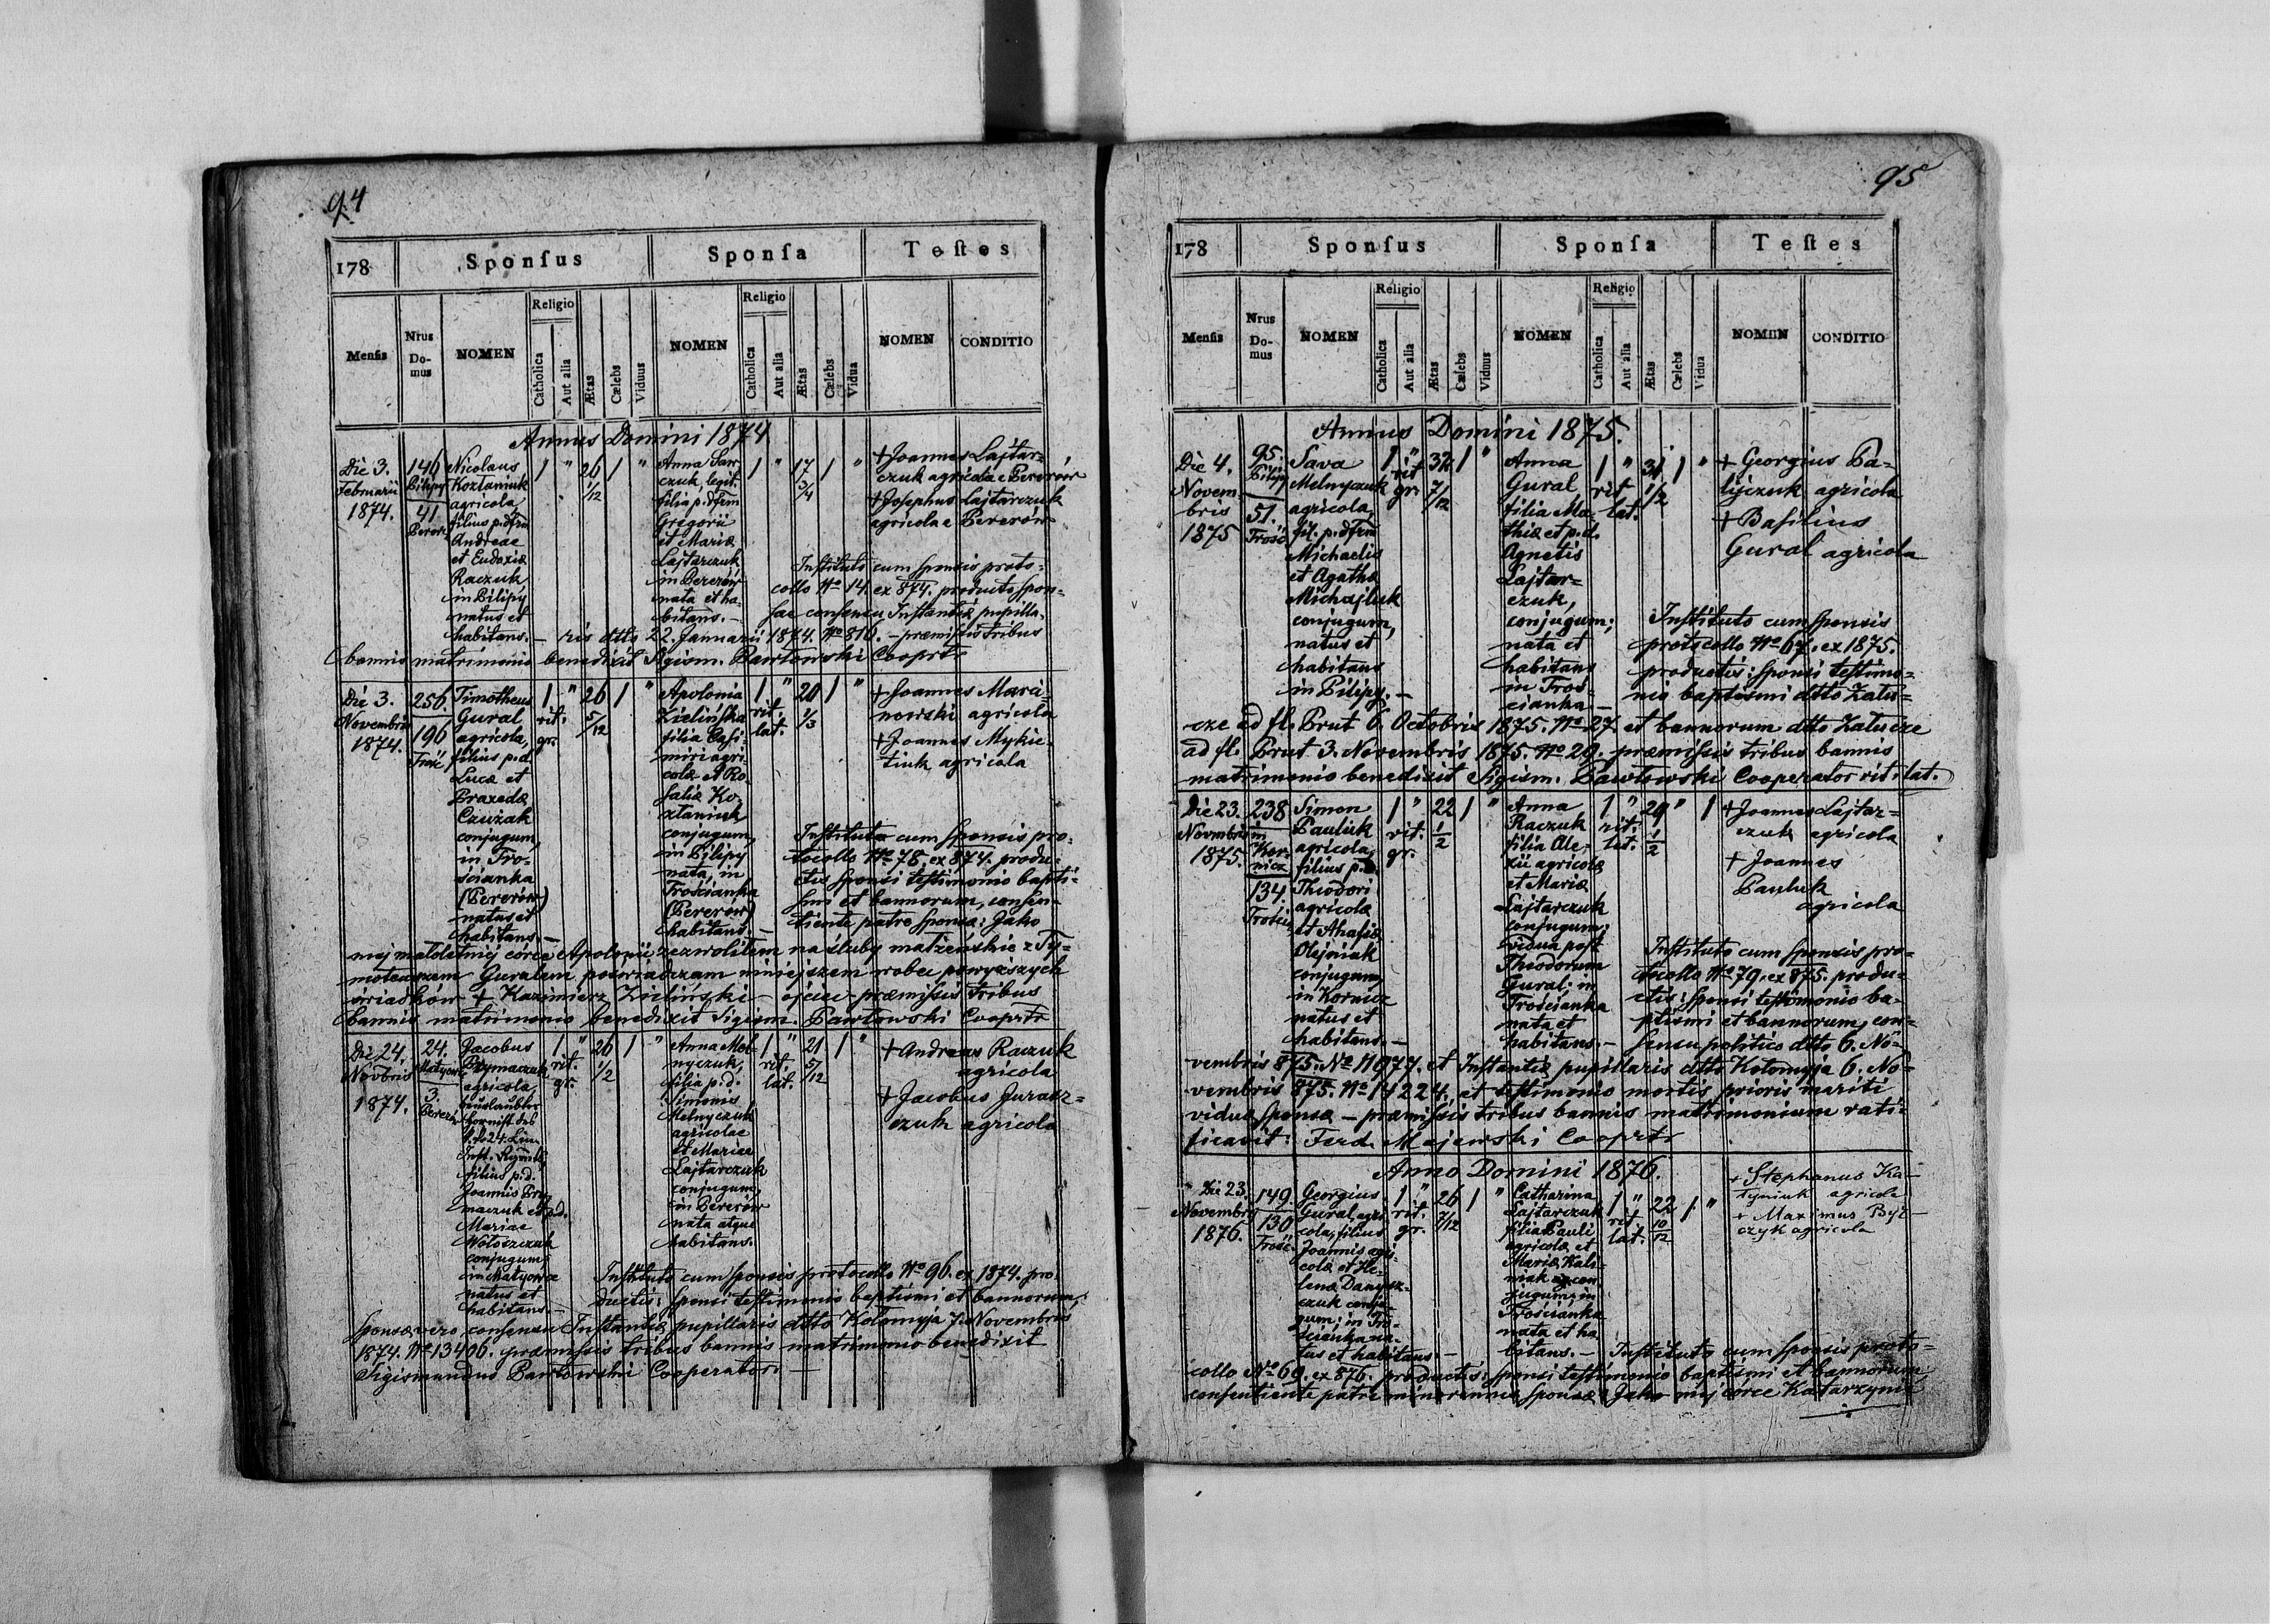 94
178 Sponſus Sponſa Teſtes
Menſis Nrus Do- mus NOMEN Religio Catholica Aut alia Ætas Cælebs Viduus NOMEN Religio Catholica Aut alia Ætas Cælebs Vidua NOMEN CONDITIO
Annus Domini 1874
Die 3.
Februarii
1874.
146
Pilipy
41
Nicolaus
Kozlaniuk
agricola,
filius p. dfm
Andreae
et Eudoxiæ
Raczuk
in Pilipy
natus et
habitans. –
1 " 26 1/12 1 "
czuk, legit.
filia p. dfem
Gregorii
et Mariæ
Lajtarczuk
in Pererów
nata et ha-
bitans. –
1 " 17 3/4 1 "
+ Joannes Lajtar-
czuk agricola e Pererów
+ Josephus Lajtarczuk
agricola e Pererów
Instituto cum sponsis proto-
collo No 14. ex 874. producto spon-
sae consensu Instantiæ pupilla-
ris dtto 22. Januarii 1874. No 810. – præmissis tribus
bannis matrimonio benedixit Sigism. Pawłowski Cooprtr
Die 3.
Novembris
1874.
256.
196
Timotheus
Gural
agricola,
filius p.d.
Lucæ et
Praxedæ
Czużak
conjugum,
in Tro-
ścianka
(Pererów)
natus et
habitans. –
1 " rit. gr. 26 5/12 1 "
Apolonia
Zielińska
filia Casi-
miri agri-
colæ et Ro-
saliæ Ko-
zlaniuk
conjugum,
in Pilipy
nata, in
Trościanka
(Pererów)
habitans. –
1 " rit. lat. 20 1/3 1 "
+ Joannes Mari-
nowski agricola
+ Joannes Mykie-
tiuk agricola
Instituto cum sponsis pro-
tocollo No 78. ex 874. produ-
ctis sponsi testimonio bapti-
smi et bannorum, consen-
tiente patre sponsæ: Jako
mej małoletniej córce Apolonii zezwoliłem na śluby małżeńskie z Ty-
moteuszem Guralem poświadczam niniejszem wobec powyższych
świadków + Kazimierz Zieliński – ojciec – præmissis tribus
bannis matrimonio benedixit Sigism. Pawłowski Cooprtr
Die 24.
Novbris
1874.
24.
3.
Jacobus
Prymaczuk
agricola,
filius p.d.
Mariae
Wołoszczuk
conjugum,
natus et
habitans. –
1 " rit. gr. 26 1/2 1 "
Anna Mel-
nyczuk,
filia p.d.
Simonis
Melnyczuk
agricolae
et Mariae
Lajtarczuk
conjugum,
in Pererów
nata atque
habitans.
1 " rit. lat. 21 5/12 1 "
+ Andreas Raczuk
agricola
+ Jacobus Juraszczuk
agricola
Instituto cum sponsis protocollo No 96. ex 1874. pro-
ductis: sponsi testimonio baptismi et bannorum,
sponsæ vero consensu Instantiæ pupillaris dtto Kołomyja 7. Novembris
1874. No 13406. præmissis tribus bannis matrimonio benedixit
Sigismundus Pawłowski Cooperator. –
95
178 Sponſus Sponſa Teſtes
Menſis Nrus Do- mus NOMEN Religio Catholica Aut alia Ætas Cælebs Viduus NOMEN Religio Catholica Aut alia Ætas Cælebs Vidua NOMEN CONDITIO
Annus Domini 1875.
Die 4.
Novem-
bris
1875
95.
Pilipy
51.
Trość
Sava
Melnyczuk
agricola,
fil. p. dfm
Michaelis
et Agathæ
Michajluk
conjugum,
natus et
habitans
in Pilipy. –
1 " rit. gr. 32 7/12 1 "
Anna
Gural
filia Ma-
thiæ et p.d.
Agnetis
Lajtar-
czuk,
conjugum;
nata et
habitans
in Troś-
cianka. –
1 " rit. lat. 31 1/2 1 "
+ Georgius Pa-
lijczuk agricola
+ Basilius
Gural agricola
Instituto cum sponsis
protocollo No 67. ex 1875.
productis: sponsi testimo-
nio baptismi dtto Zału-
cze ad fl. Prut 6. Octobris 1875. No 27. et bannorum dtto Załucze
ad fl. Prut 3. Novembris 1875. No 29. præmissis tribus bannis
matrimonio benedixit Sigism. Pawłowski Cooperator rit. lat.
Die 23.
Novembris
1875.
238
in
Kor-
nicz
134.
Trość
Simon
Pauluk
agricola,
filius p.d.
Theodori
agricolæ
et Ahafiæ
Olijniak
conjugum,
in Kornicz
natus et
habitans. –
1 " rit. gr. 22 1/2 1 "
Anna
Raczuk
filia Ale-
xii agricolæ
et Mariæ
Lajtarczuk
conjugum;
vidua post
Theodorum
Gural; in
Trościanka
nata et
habitans. –
1 " rit. lat. 29 1/2 " 1
+ Joannes Lajtar-
czuk agricola
+ Joannes
Pauluk
agricola
Instituto cum sponsis pro-
tocollo No 79. ex 875. produ-
ctis: sponsi testimonio ba-
ptismi et bannorum, con-
sensu politico dtto 6. No-
vembris 875. No 11077. et Instantiæ pupillaris dtto Kołomyja 6. No-
vembris 875. No 14224. et testimonio mortis prioris mariti
viduæ sponsæ – præmissis tribus bannis matrimonium rati-
ficavit: Ferd. Majewski Cooprtr
Anno Domini 1876.
Die 23.
Novembris
1876.
149.
130
Trość.
Georgius
Gural, agri-
cola, filius
Joannis agri-
colæ et He-
lenæ Danysz-
czuk conju-
gum; in Tro-
ścianka na-
tus et habitans –
1 " rit. gr. 26 7/12 1 "
Catharina
Lajtarczuk
filia Pauli
agricolæ et
Mariæ Kali-
niak con-
jugum; in
Trościanka
nata et ha-
bitans. –
1 " rit. lat. 22 10/12 1 "
+ Stephanus Ka-
tyniuk agricola
+ Maximus Byt-
czyk agricola
Instituto cum sponsis proto-
collo No 69. ex 876. productis: sponsi testimonio baptismi et bannorum,
consentiente patre minorennæ sponsæ: Jako mej córce Katarzynie